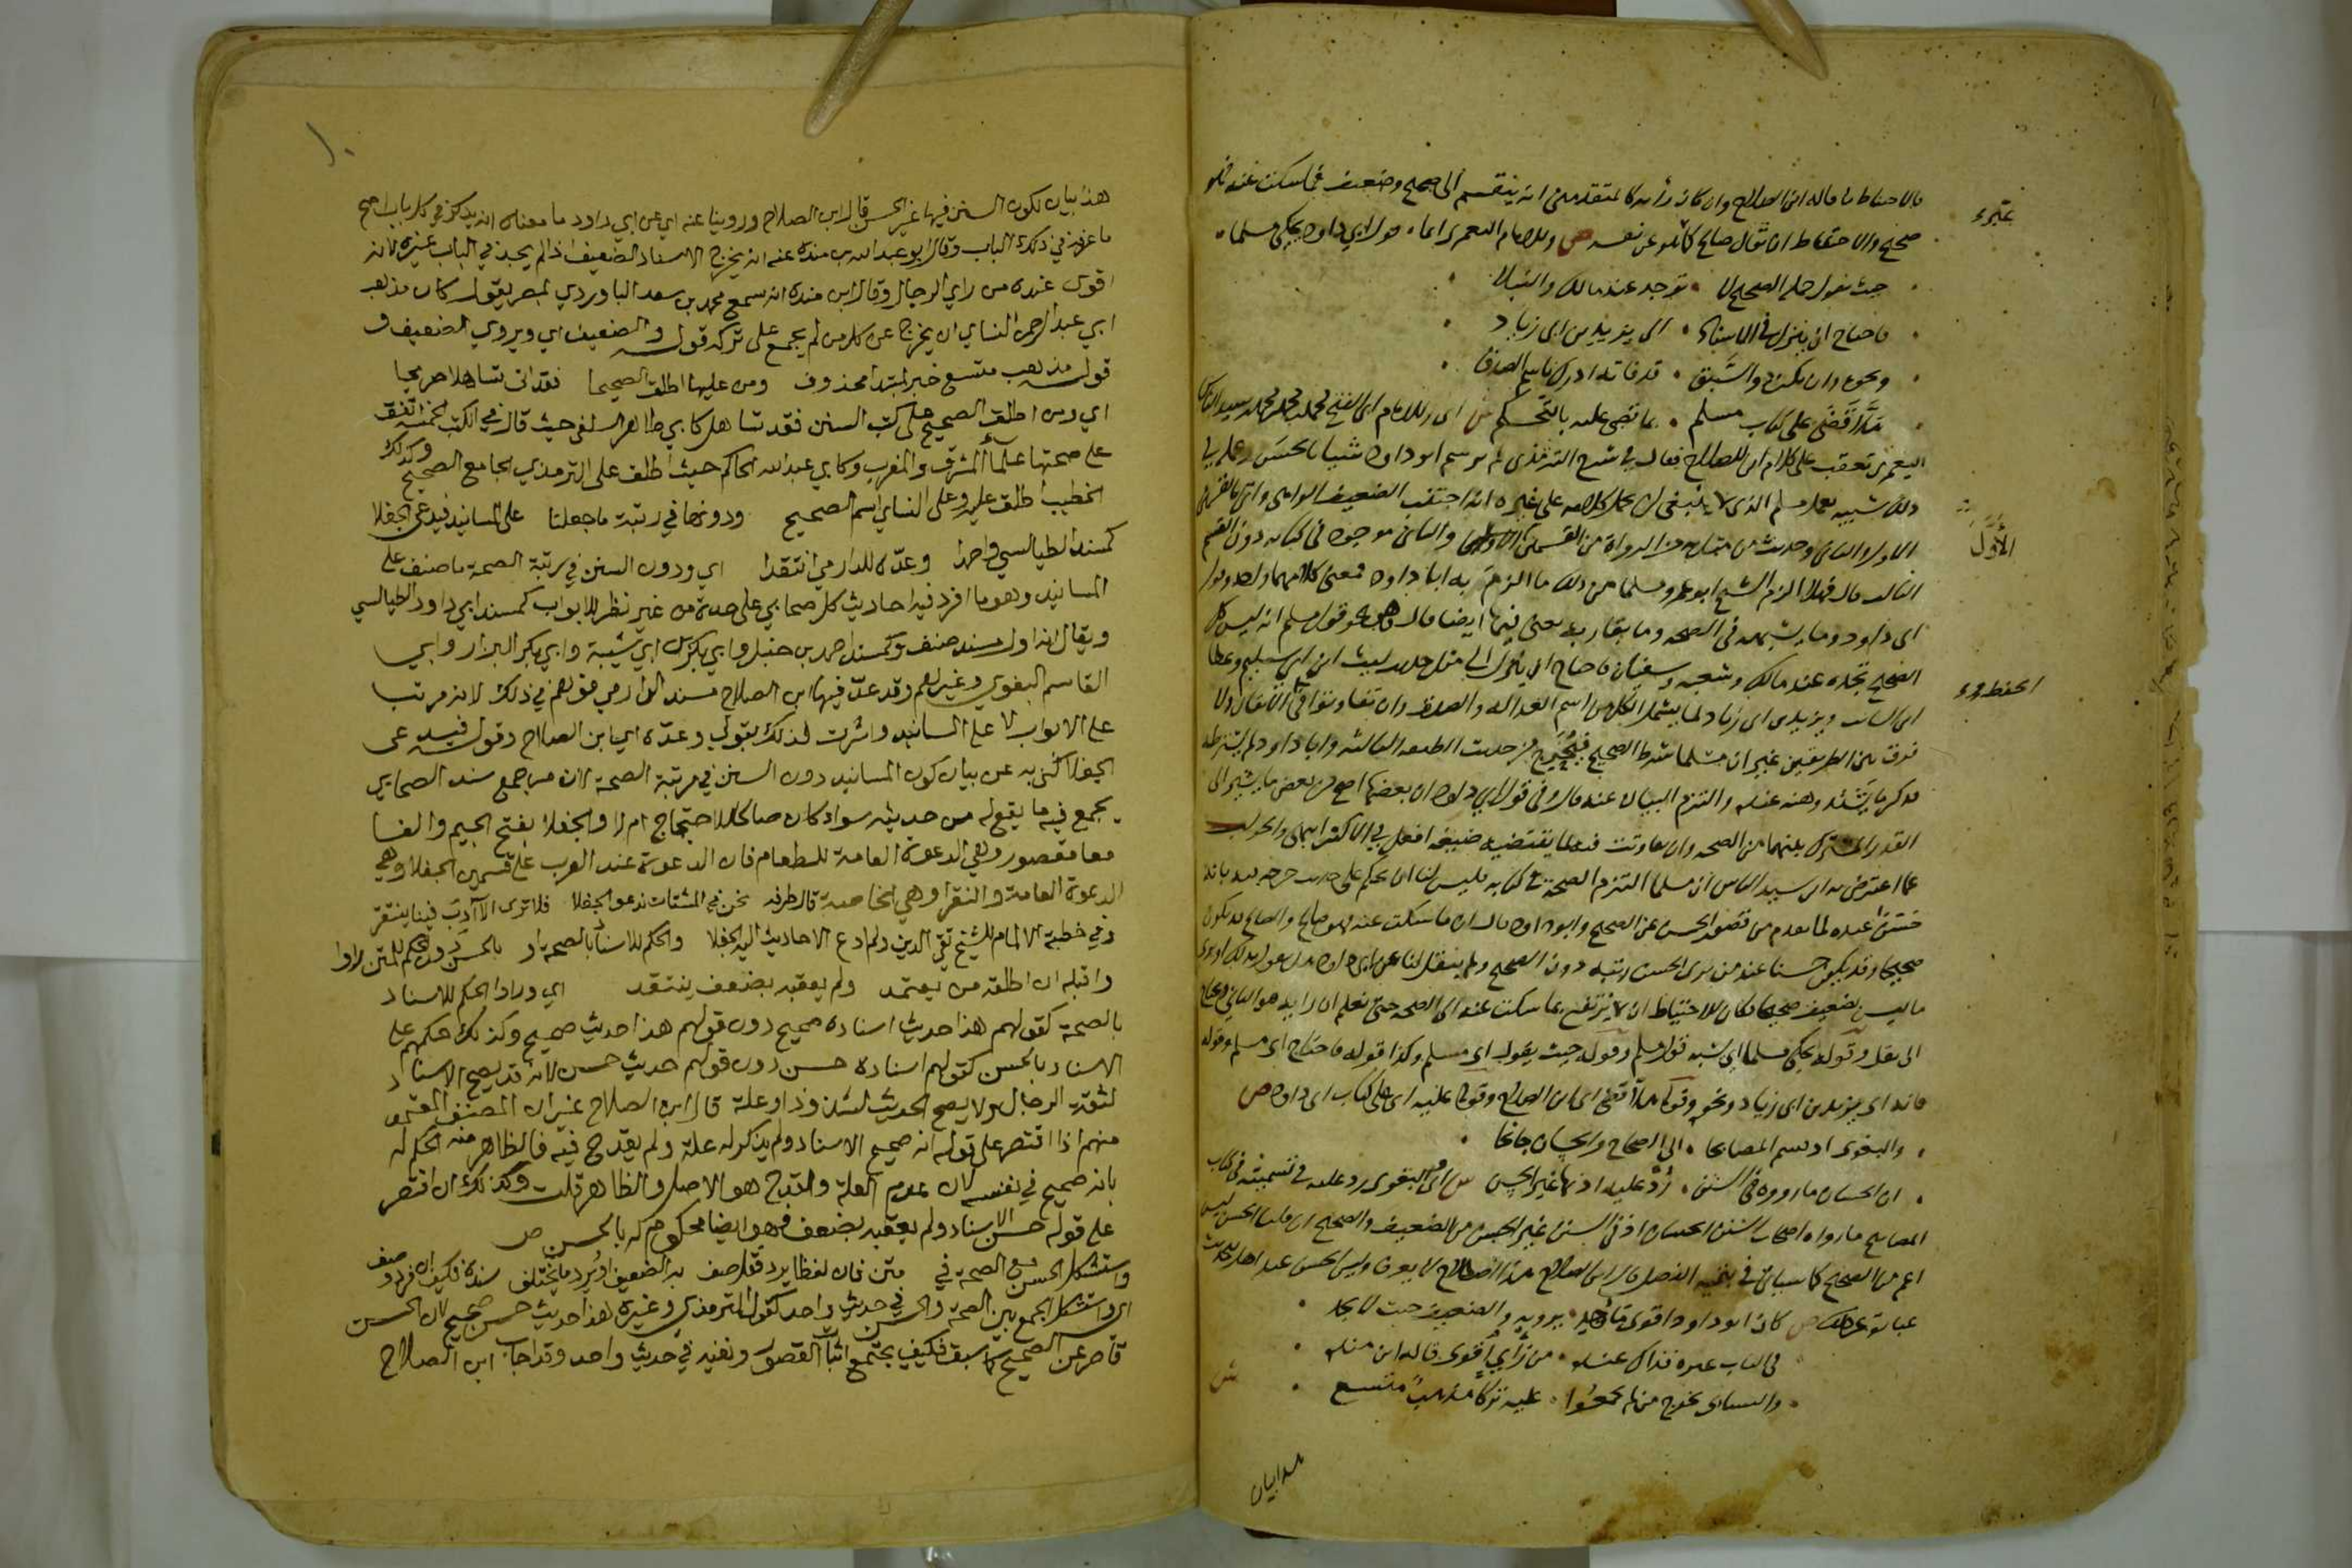 فالاحتياط ما قاله ابن الصلاح وان كان رأيه كالمتقدمين انه ينقسم الى صحيح وضعيف فما سكت عنه فهو
صحيح والاحتياط ان يقال صالح كما هو عن نفسه ص وللامام اليعمري انما قول ابي داود يحكي مسلما
حيث يقول جملة الصحيح لا توجد عند مالك والنبلا
فاحتاج ان ينزل في الاسناد الى يزيد بن ابي زياد
ونحوه وان يكن ذو السبق قد فاته ادرك باسم الصدق
هلا قضى على كتاب مسلم بما قضى عليه بالتحكم ش اي وللامام ابي الفتح محمد بن محمد بن محمد بن سيد الناس
اليعمري تعقب على كلام ابن الصلاح فقال في شرح الترمذي لم يرسم ابو داود شيئا بالحسن وعمله في
ذلك شبيه بعمل مسلم الذي لا ينبغي ان يحمل كلامه على غيره انه اجتنب الضعيف الواهي واتى بالقسمين
الاول والثاني وحديث من مثل به من الرواة من القسمين الاول والثاني موجود في كتابه دون القسم
الثالث قال فهلا الزم الشيخ ابو عمرو مسلما من ذلك ما الزم به ابا داود فمعنى كلامهما واحد وقول
ابي داود وما يشبهه في الصحة وما يقاربه يعني فيها ايضا قال وهو نحو قول مسلم انه ليس كل
الصحيح تجده عند مالك وشعبة وسفيان فاحتاج ان ينزل الى مثل حديث ليث ابن ابي سليم وعطا
ابن السائب ويزيد بن ابي زياد لما يشمل الكل من اسم العدالة والصدق وان تفاوتوا في الحفظ والاتقان ولا
فرق بين الطريقين غير ان مسلما شرط الصحيح فتحرج من حديث الطبقة الثالثة وابا داود لم يشترطه
فذكر ما يشتد وهنه عنده والتزم البيان عنه قال وفي قول ابي داود ان بعضها اصح من بعض ما يشير الى
القدر المشترك بينهما من الصحة وان تفاوتت فيه لما يقتضيه صيغة افعل في الاكثر انتهى والجواب
عما اعترض به ابن سيد الناس ان مسلما التزم الصحة في كتابه فليس لنا ان نحكم على حديث خرجه فيه بانه
حسن عنده لما تقدم من قصور الحسن عن الصحيح وابو داود قال ان ما سكت عنه فهو صالح والصالح قد يكون
صحيحا وقد يكون حسنا عند من يرى الحسن رتبة دون الصحيح ولم ينقل لنا عن ابي داود هل يقول بذلك او يرى
ما ليس بضعيف صحيحا فكان للاحتياط ان لا يرتفع بما سكت عنه الى الصحة حتى نعلم ان رايه هو الثاني ويحتاج
الى نقل وقوله يحكي مسلما اي يشبه قول مسلم وقوله حيث يقول اي مسلم وكذا قوله فاحتاج اي مسلم وقوله
فاته اي يزيد بن ابي زياد ونحوه وقوله هلا قضى اي ابن الصلاح وقوله عليه اي على كتاب ابي داود ص
والبغوي اذ قسم المصابحا الى الصحاح والحسان جانحا
ان الحسان ما رووه في السنن رد عليه اذ بها غير الحسن ش اي البغوي رد عليه في تسميته في كتاب
المصابيح ما رواه اصحاب السنن الحسان اذ في السنن غير الحسن من الضعيف والصحيح ان قلنا الحسن ليس
اعم من الصحيح كما سياتي في بقية الفصل قال ابن الصلاح هذا اصطلاح لا يعرف وليس الحسن عند اهل الحديث
عبارة عن ذلك ص كان ابو داود اقوى ما وجد يرويه والضعيف حيث لا يجد
في الباب غيره فذاك عنده من رأي اقوى قاله ابن منده
والنسائي يخرج من لم يجمعوا عليه تركا مذهب متسع ش
هذا بيان
الاول
الحفظ و
هذا بيان لكون السنن فيها غير الحسن قال ابن الصلاح وروينا عنه اي عن ابي داود ما معناه انه يذكر في كل باب اصح
ما عرفه في ذلك الباب وقال ابو عبد الله بن منده عنه انه يخرج الاسناد الضعيف اذا لم يجد في الباب غيره لانه
اقوى عنده من راي الرجال وقال ابن منده انه سمع محمد بن سعد الباوردي بمصر يقول كان مذهب
ابي عبد الرحمن النساي ان يخرج عن كل من لم يجمع على تركه قوله والضعيف اي ويروي الضعيف و
قوله مذهب متسع خبر لمبتدا محذوف ومن عليها اطلق الصحيحا فقد اتى تساهلا صريحا
اي ومن اطلق الصحيح على كتب السنن فقد تساهل كابي طاهر السلفي حيث قال في الكتب الخمسة اتفق
على صحتها علما المشرق والمغرب وكابي عبد الله الحاكم حيث اطلق على الترمذي الجامع الصحيح وكذلك
الخطيب اطلق عليه وعلى النساي اسم الصحيح ودونها في رتبة ما جعلا على المسانيد فيدعى الجفلا
كمسند الطيالسي واحمدا وعده للدارمي انتقدا اي ودون السنن في رتبة الصحة ما صنف على
المسانيد وهو ما افرد فيه احاديث كل صحابي على حدة من غير نظر للابواب كمسند ابي داود الطيالسي
ويقال انه اول مسند صنف وكمسند احمد بن حنبل وابي بكر بن ابي شيبة وابي بكر البزار وابي
القاسم البغوي وغيرهم وقد عد فيها ابن الصلاح مسند الدارمي فوهم في ذلك لانه مرتب
على الابواب لا على المسانيد واشرت لذلك بقولي وعده اي ابن الصلاح وقوله فيدعى
الجفلا كنى به عن بيان كون المسانيد دون السنن في مرتبة الصحة لان من جمع مسند الصحابي
يجمع فيه ما يقع له من حديثه سواء كان صالحا للاحتجاج ام لا والجفلا بفتح الجيم والفا
معا مقصور وهي الدعوة العامة للطعام فان الدعوة عند العرب على قسمين الجفلا وهي
الدعوة العامة والنقرا وهي الخاصة قال طرفه نحن في المشتات ندعو الجفلا فلا ترى الآدب فينا ينتقر
وفي خطبة الالمام للشيخ تقي الدين ولم ادع الاحاديث اليه الجفلا والحكم للاسناد بالصحة او بالحسن دون الحكم للمتن راوا
واقبله ان اطلقه من يعتمد ولم يعقبه بضعف ينتقد اي وراوا الحكم للاسناد
بالصحة كقولهم هذا حديث اسناده صحيح دون قولهم هذا حديث صحيح وكذلك حكمهم على
الاسناد بالحسن كقولهم اسناده حسن دون قولهم حديث حسن لانه قد يصح الاسناد
لثقة الرجال ولا يصح الحديث لشذوذ او علة قال ابن الصلاح غير ان المصنف المعتمد
منهم اذا اقتصر على قوله انه صحيح الاسناد ولم يذكر له علة ولم يقدح فيه فالظاهر منه الحكم له
بانه صحيح في نفسه لان عدم العلة والقدح هو الاصل والظاهر قلت وكذلك ان اقتصر
على قوله حسن الاسناد ولم يعقبه بضعف فهو ايضا محكوم له بالحسن ص
واستشكل الحسن مع الصحة في متن فان لفظا يرد فقل صف به الضعيف او يرد ما يختلف سنده فكيف ان فرد وصف
اي واستشكل الجمع بين الصحة والحسن في حديث واحد كقول الترمذي وغيره هذا حديث حسن صحيح لان الحسن
قاصر عن الصحيح كما سبق فكيف يجتمع اثبات القصور ونفيه في حديث واحد وقد اجاب ابن الصلاح